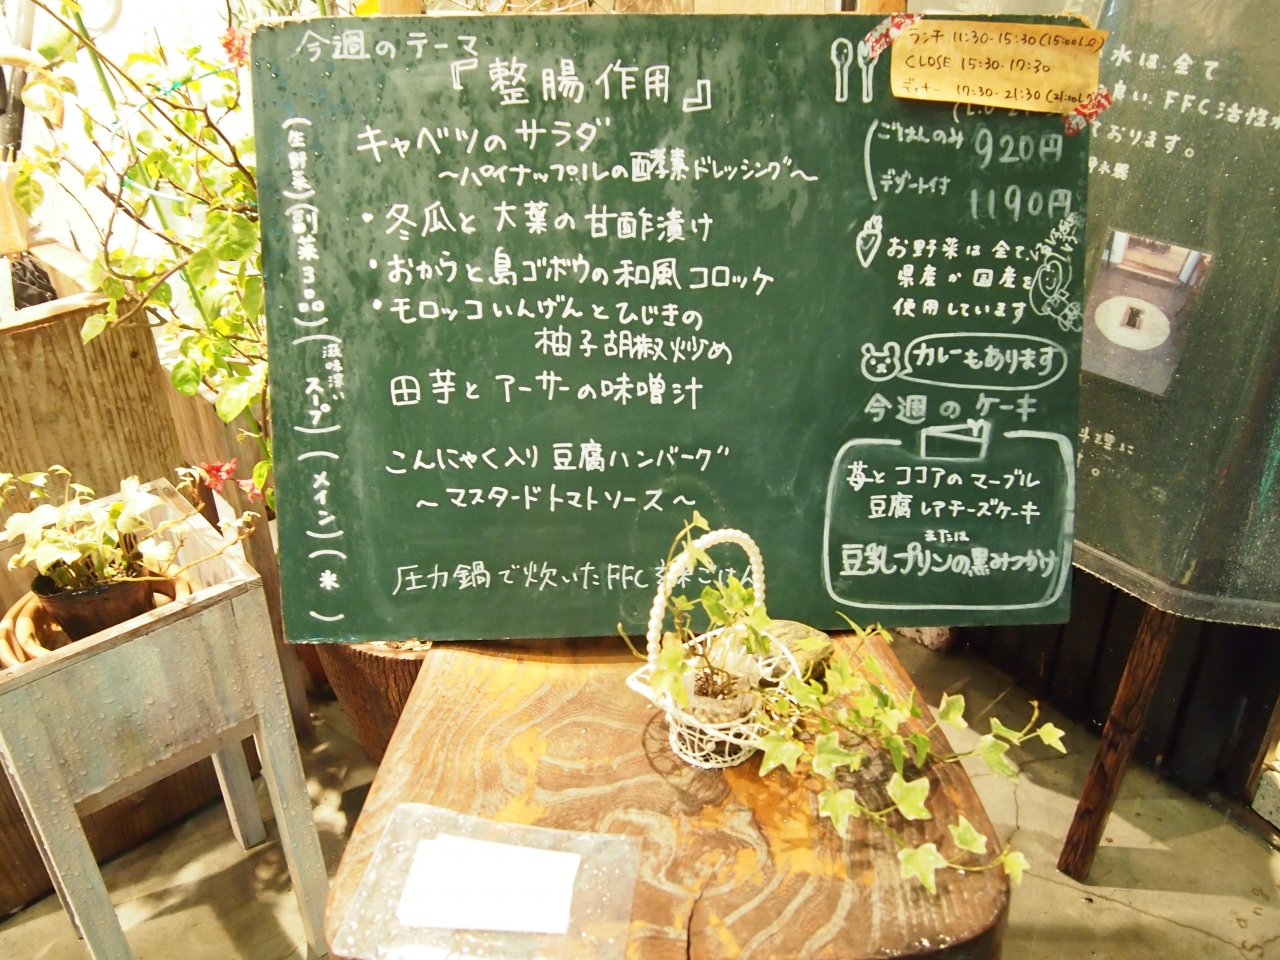 今週のテーマ
『整腸作用』
(生野菜)
キャベツのサラダ
〜パイナップルの酵素ドレッシング〜
(副菜3品)
・冬瓜と大葉の甘酢漬け
・おからと島ゴボウの和風コロッケ
・モロッコいんげんとひじきの
柚子胡椒炒め
(滋味深い
スープ)
田芋とアーサーの味噌汁
(メイン)
こんにゃく入り豆腐ハンバーグ
〜マスタードトマトソース〜
(米)
圧力鍋で炊いたFFC ごはん
ランチ 11:30-15:30(15:00L.O)
CLOSE 15:30-17:30
ディナー 17:30-21:30(21:00L
ごはんのみ 920円
デザート付 1190円
お野菜は全て、
県産か国産を
使用しています
カレーもあります
今週のケーキ
苺とココアのマーブル
豆腐レアチーズケーキ
または
豆乳プリンの黒みつかけ
水は全て
良い、FFC活性水
ております。
浄水器
料理に
す。